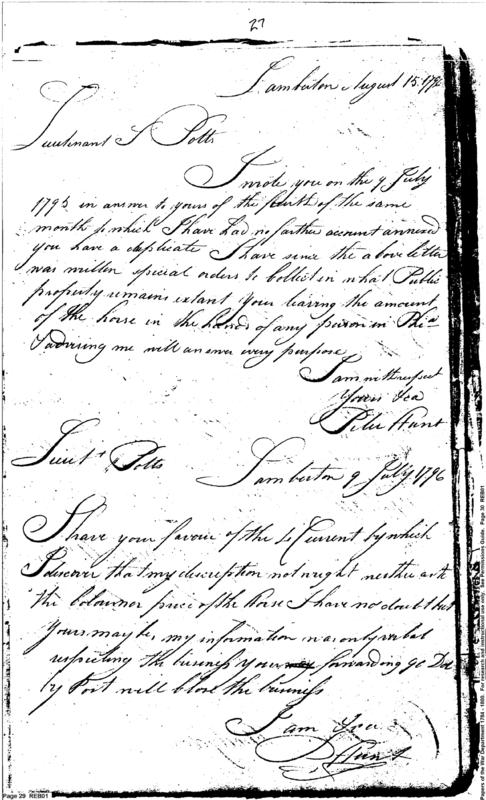 27
Lamberton August 15 179
Lieutenant S Potts
I wrote you on the 9 July
1795 in answer to yours of the fourth of the same
month to which I have had no farther account annexed
you have a duplicate I have since the above letter
was written special orders to collect in what Public
property remains extant your leaving the amount
of the horse in the hands of any person in
& advising me will answer every purpose
I am with respect
Yours &ca
Peter Hunt
Lieut. Potts
Lamberton 9 July 1796
I have your favour of the 4 Current by which
I discover that my description not right neither as to
the Colour nor price of the horse I have no doubt but
Yours may be, my information was only verbal
respecting the business your forwarding 90 Dol
by Post will close the business
I am &ca
P Hunt
Page 29 REB01
Papers of the War Department 1784 - 1800. For research and instructional use only. See Permission Guide. Page 30 REB01